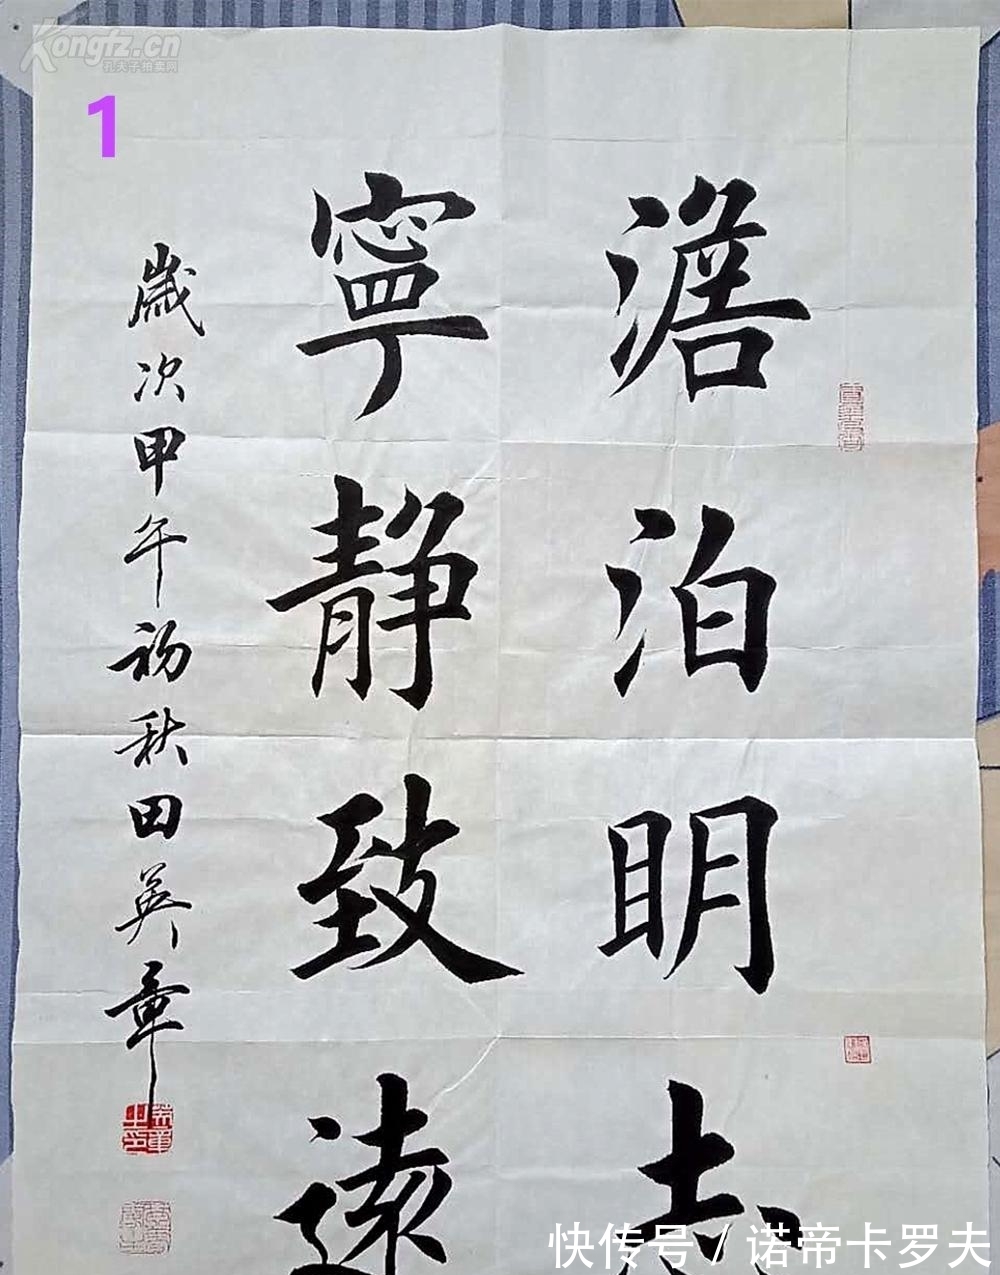 Kongfz.cn
孔夫子拍卖网
1
澹泊明志
寧靜致遠
歲次甲午初秋田英章
快传号／诺帝卡罗夫